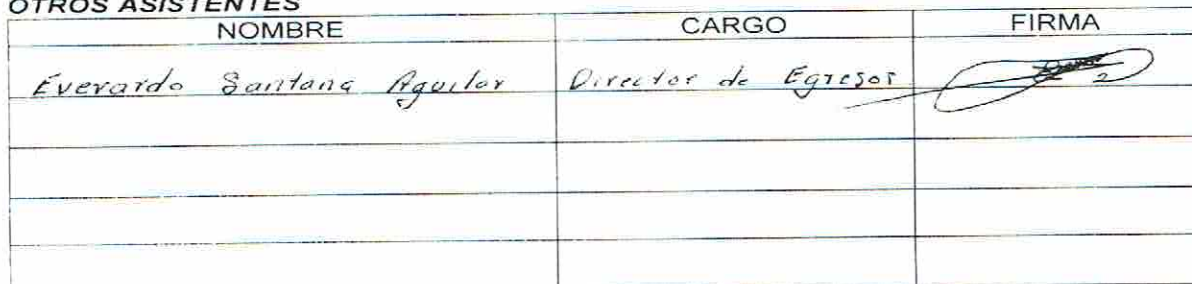 OTROS ASISTENTES
NOMBRE CARGO FIRMA
Everardo Santana Aguilar Director de Egresos